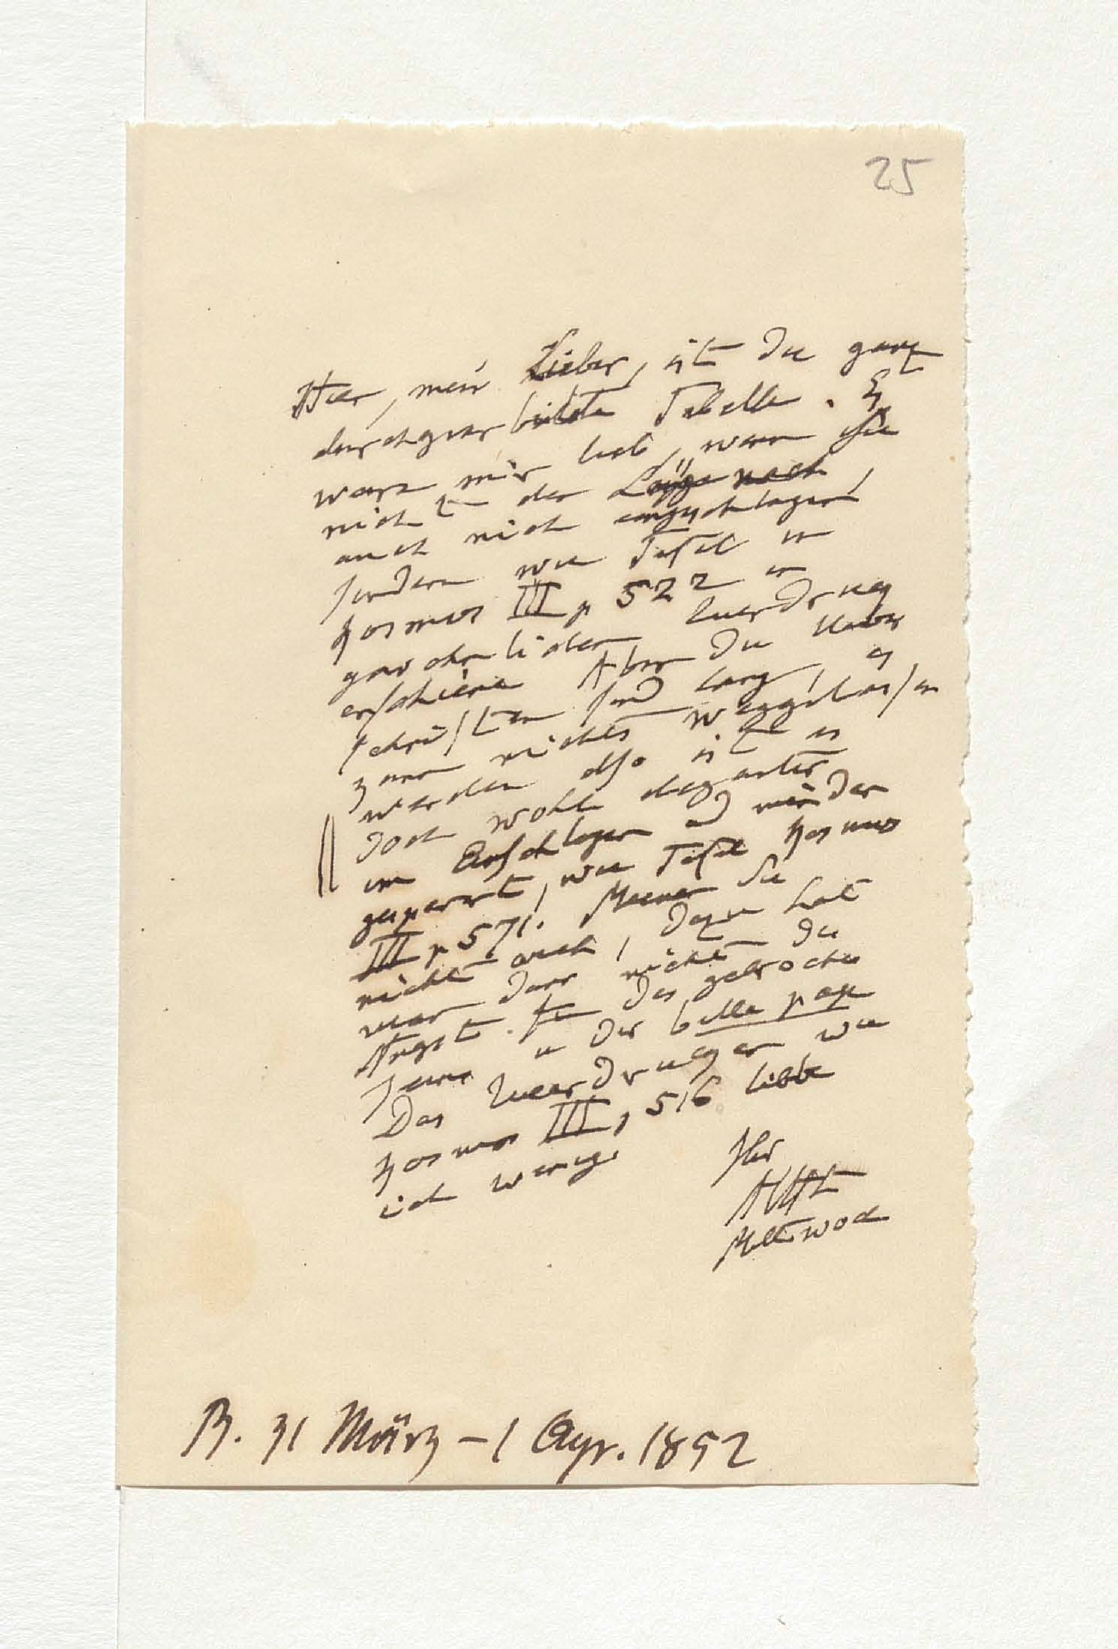 25
Hier, mein Lieber, ist die ganz
durchgearbeitete Tabelle. Es
wäre mir lieb, wenn Sie
nicht der Länge nach
auch nicht eingeschlagen,
sondern wie Tafel in
Kosmos III p 522 in
gewöhnlicher Queerdruck
erschiene Aber die Ueber
schriften sind lang, es
kann nichts weggelassen
werden also ist es
doch wohl eleganter
im Einschlagen und minder
gesperrt, wie Tafel Kosmos
III p 571. Meinen Sie
nicht auch, dazu hat
man dann nicht die
Angst. für das gebrochen
sein in der belle page
Das Queerdrucken wie
Kosmos III p 516 liebe
ich wenig.
Ihr
AHt
Mittwoch
B. 31 März – 1 Apr. 1852